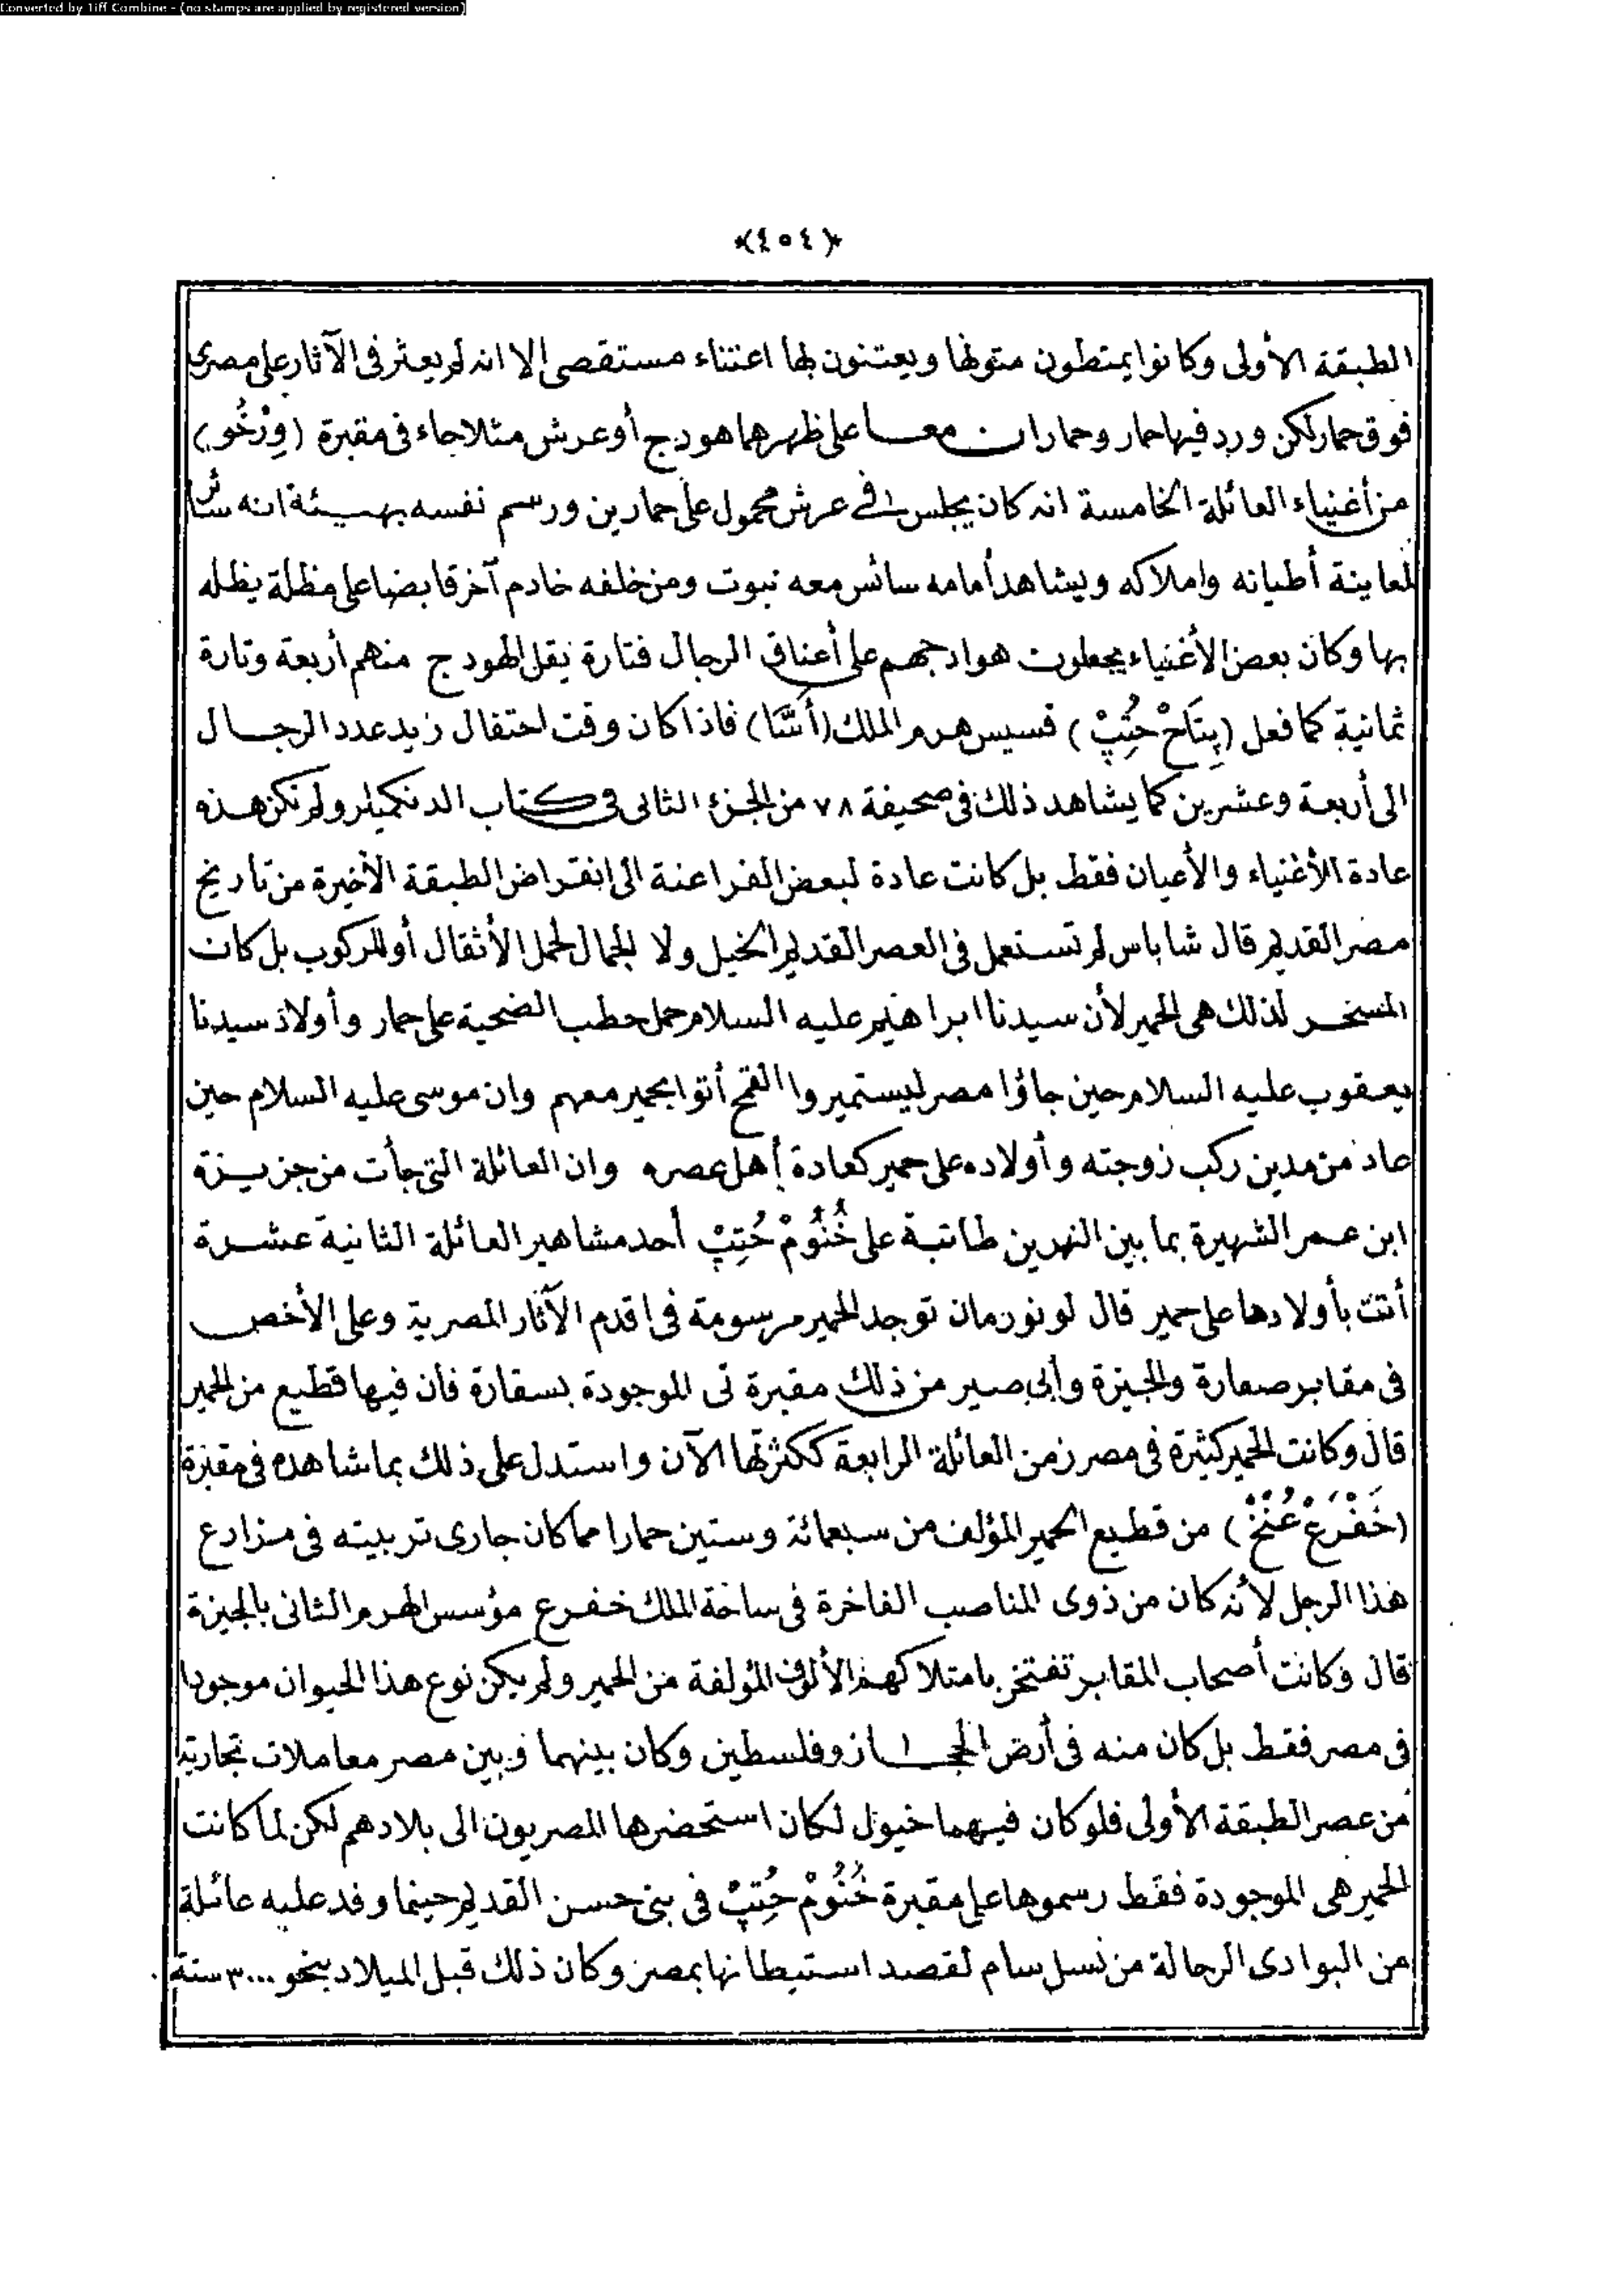 Converted by Tiff Combine - (no stamps are applied by registered version)
﴿٤٥٤﴾
الطبقة الأولى وكانوا يمتطون متونها ويعتنون بها اعتناء مستقصى إلا انه لم يعثر فى الآثار على مصرى
فوق حمار لكن ورد فيها حمار وحماران معا على ظهرهما هودج أو عرش مثلا جاء فى مقبرة (وِرْخُو)
من أغنياء العائلة الخامسة انه كان يجلس فى عرش محمول على حمارين ورسم نفسه بهيئة انه سائر
لمعاينة أطيانه واملاكه ويشاهد أمامه سائس معه نبوت ومن خلفه خادم آخر قابضا على مظلة يظله
بها وكان بعض الأغنياء يجعلون هوادجهم على أعناق الرجال فتارة ينقل الهودج منهم أربعة وتارة
ثمانية كما فعل (پِتَاحْ حُتِپْ) قسيس هرم الملك (أَسَّا) فاذا كان وقت احتفال زيد عدد الرجال
الى أربعة وعشرين كما يشاهد ذلك فى صحيفة ٧٨ من الجزء الثانى فى كتاب الدنكميلر ولم تكن هذه
عادة الأغنياء والأعيان فقط بل كانت عادة لبعض الفراعنة الى انقراض الطبقة الأخيرة من تاريخ
مصر القديم قال شاباس لم تستعمل فى العصر القديم الخيل ولا الجمال لحمل الأثقال أو للركوب بل كان
المسخر لذلك هى الحمير لأن سيدنا ابراهيم عليه السلام حمل حطب الضحية على حمار وأولاد سيدنا
يعقوب عليه السلام حين جاؤا مصر ليستميروا القمح أتوا بحمير معهم وان موسى عليه السلام حين
عاد من مدين ركب زوجته وأولاده على حمير كعادة أهل عصره وان العائلة التى جأت من جزيرة
ابن عمر الشهيرة بما بين النهرين طانبة على خُنُومْ حُتِپْ أحد مشاهير العائلة الثانية عشرة
أتت بأولادها على حمير قال لونورمان توجد الحمير مرسومة فى اقدم الآثار المصرية وعلى الأخص
فى مقابر صقارة والجيزة وأبى صير من ذلك مقبرة تى الموجودة بسقارة فان فيها قطيع من الحمير
قال وكانت الحمير كثيرة فى مصر زمن العائلة الرابعة ككثرتها الآن واستدل على ذلك بما شاهده فى مقبرة
(خَفْرَعْ عُنْخْ) من قطيع الحمير المؤلف من سبعمائة وستين حمارا مما كان جارى تربيته فى مزارع
هذا الرجل لأنه كان من ذوى المناصب الفاخرة فى ساحة الملك خفرع مؤسس الهرم الثانى بالجيزة
قال وكانت أصحاب المقابر تفتخر بامتلاكهم الألوف المؤلفة من الحمير ولم يكن نوع هذا الحيوان موجودا
فى مصر فقط بل كان منه فى أرض الحجاز وفلسطين وكان بينهما وبين مصر معاملات تجارية
من عصر الطبقة الأولى فلو كان فيهما خيول لكان استحضرها المصريون الى بلادهم لكن لما كانت
الحمير هى الموجودة فقط رسموها على مقبرة خُنُومْ حُتِپْ فى بنى حسن القديم حينما وفد عليه عائلة
من البوادى الرحالة من نسل سام لقصد استيطانها بمصر وكان ذلك قبل الميلاد بنحو ٣٠٠٠ سنة